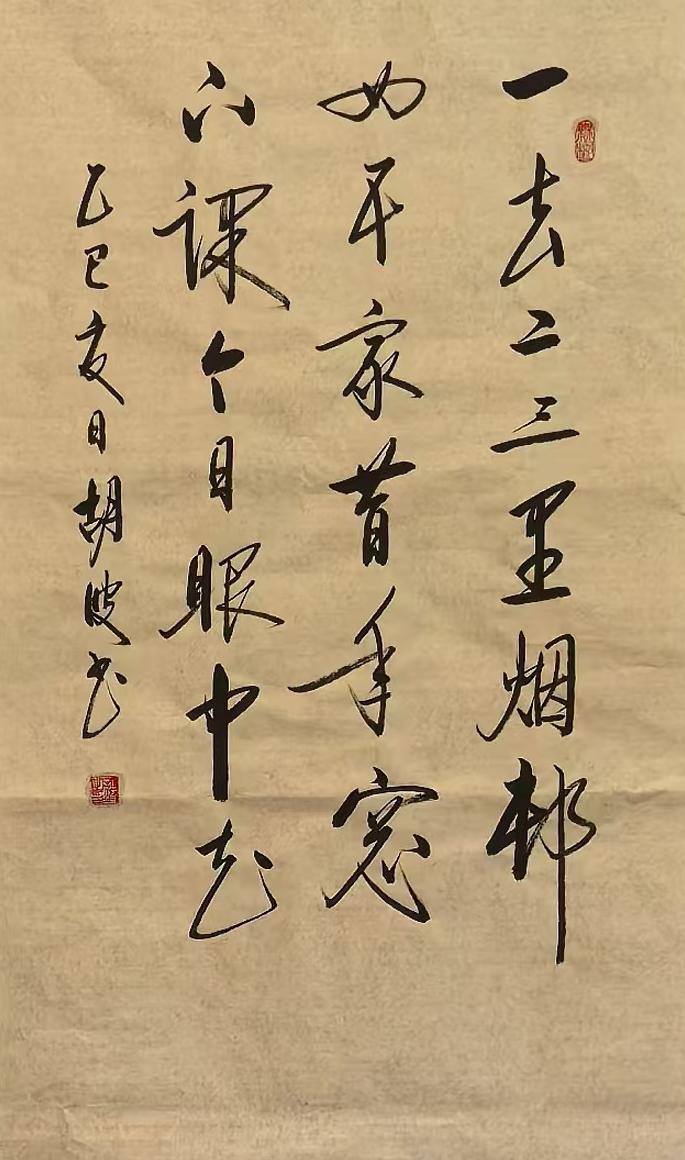 一去二三里烟邨
四五家昔年窓
下课今日眼中花
乙巳夏日胡瞍书